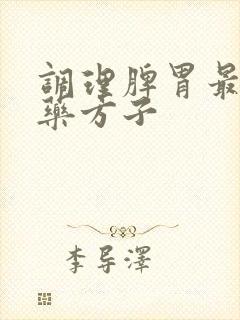 調理脾胃最
藥方子
李导澤